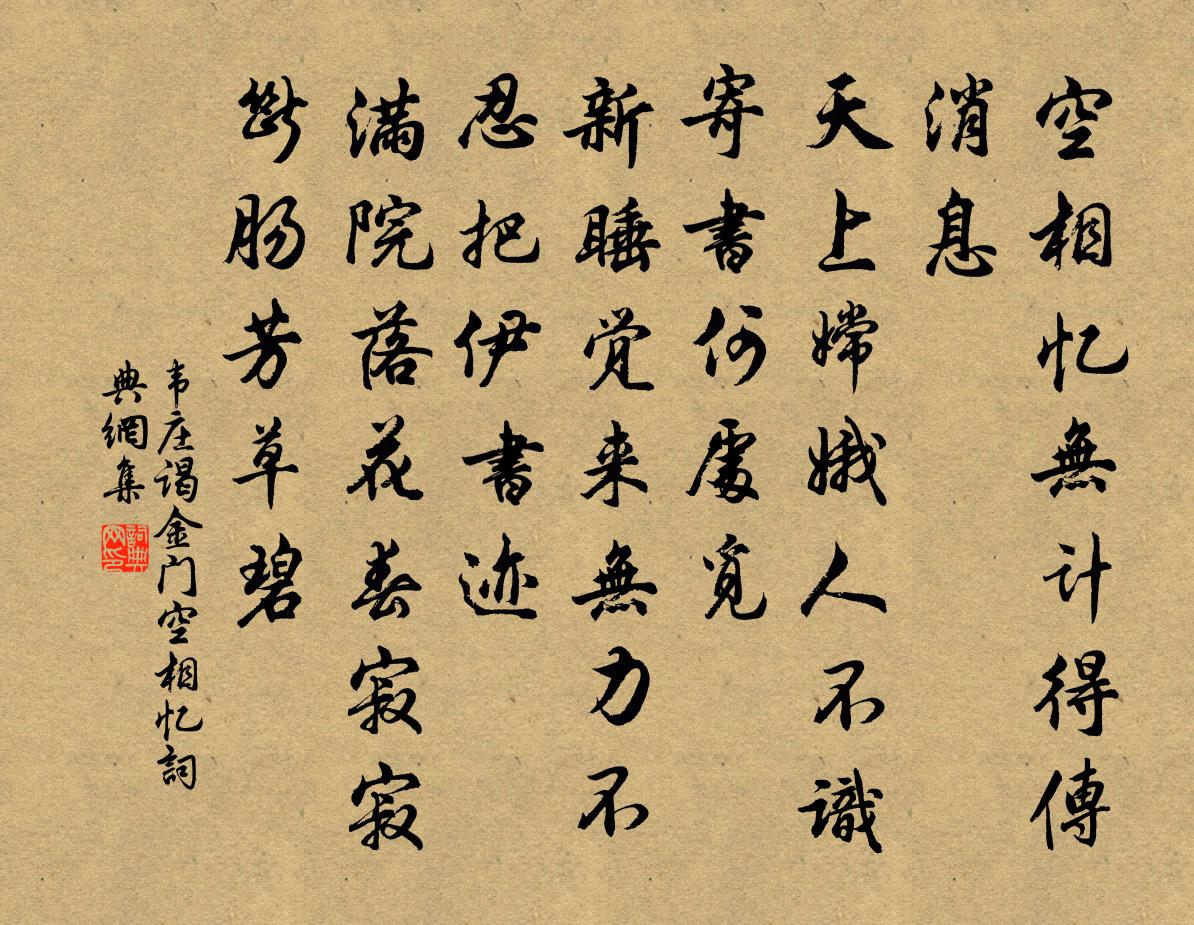 空相忆無计得傳
消息
天上嫦娥人不識
寄書何處覓
新睡觉来無力不
忍把伊書迹
满院落花春寂寂
断肠芳草碧
韦庄谒金门空相忆詞
典網集
詞典网印